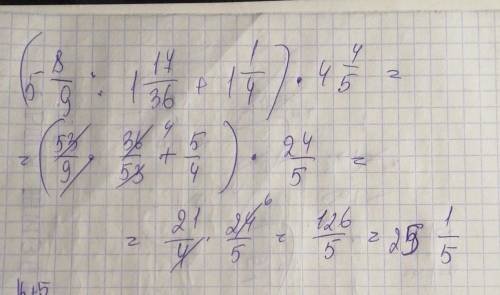 (5 8/9 : 1 17/36 + 1 1/4) · 4 4/5 =
= (53/9 · 36/53 4 + 5/4) · 24/5 =
= 21/4 · 24/5 6 = 126/5 = 25 1/5